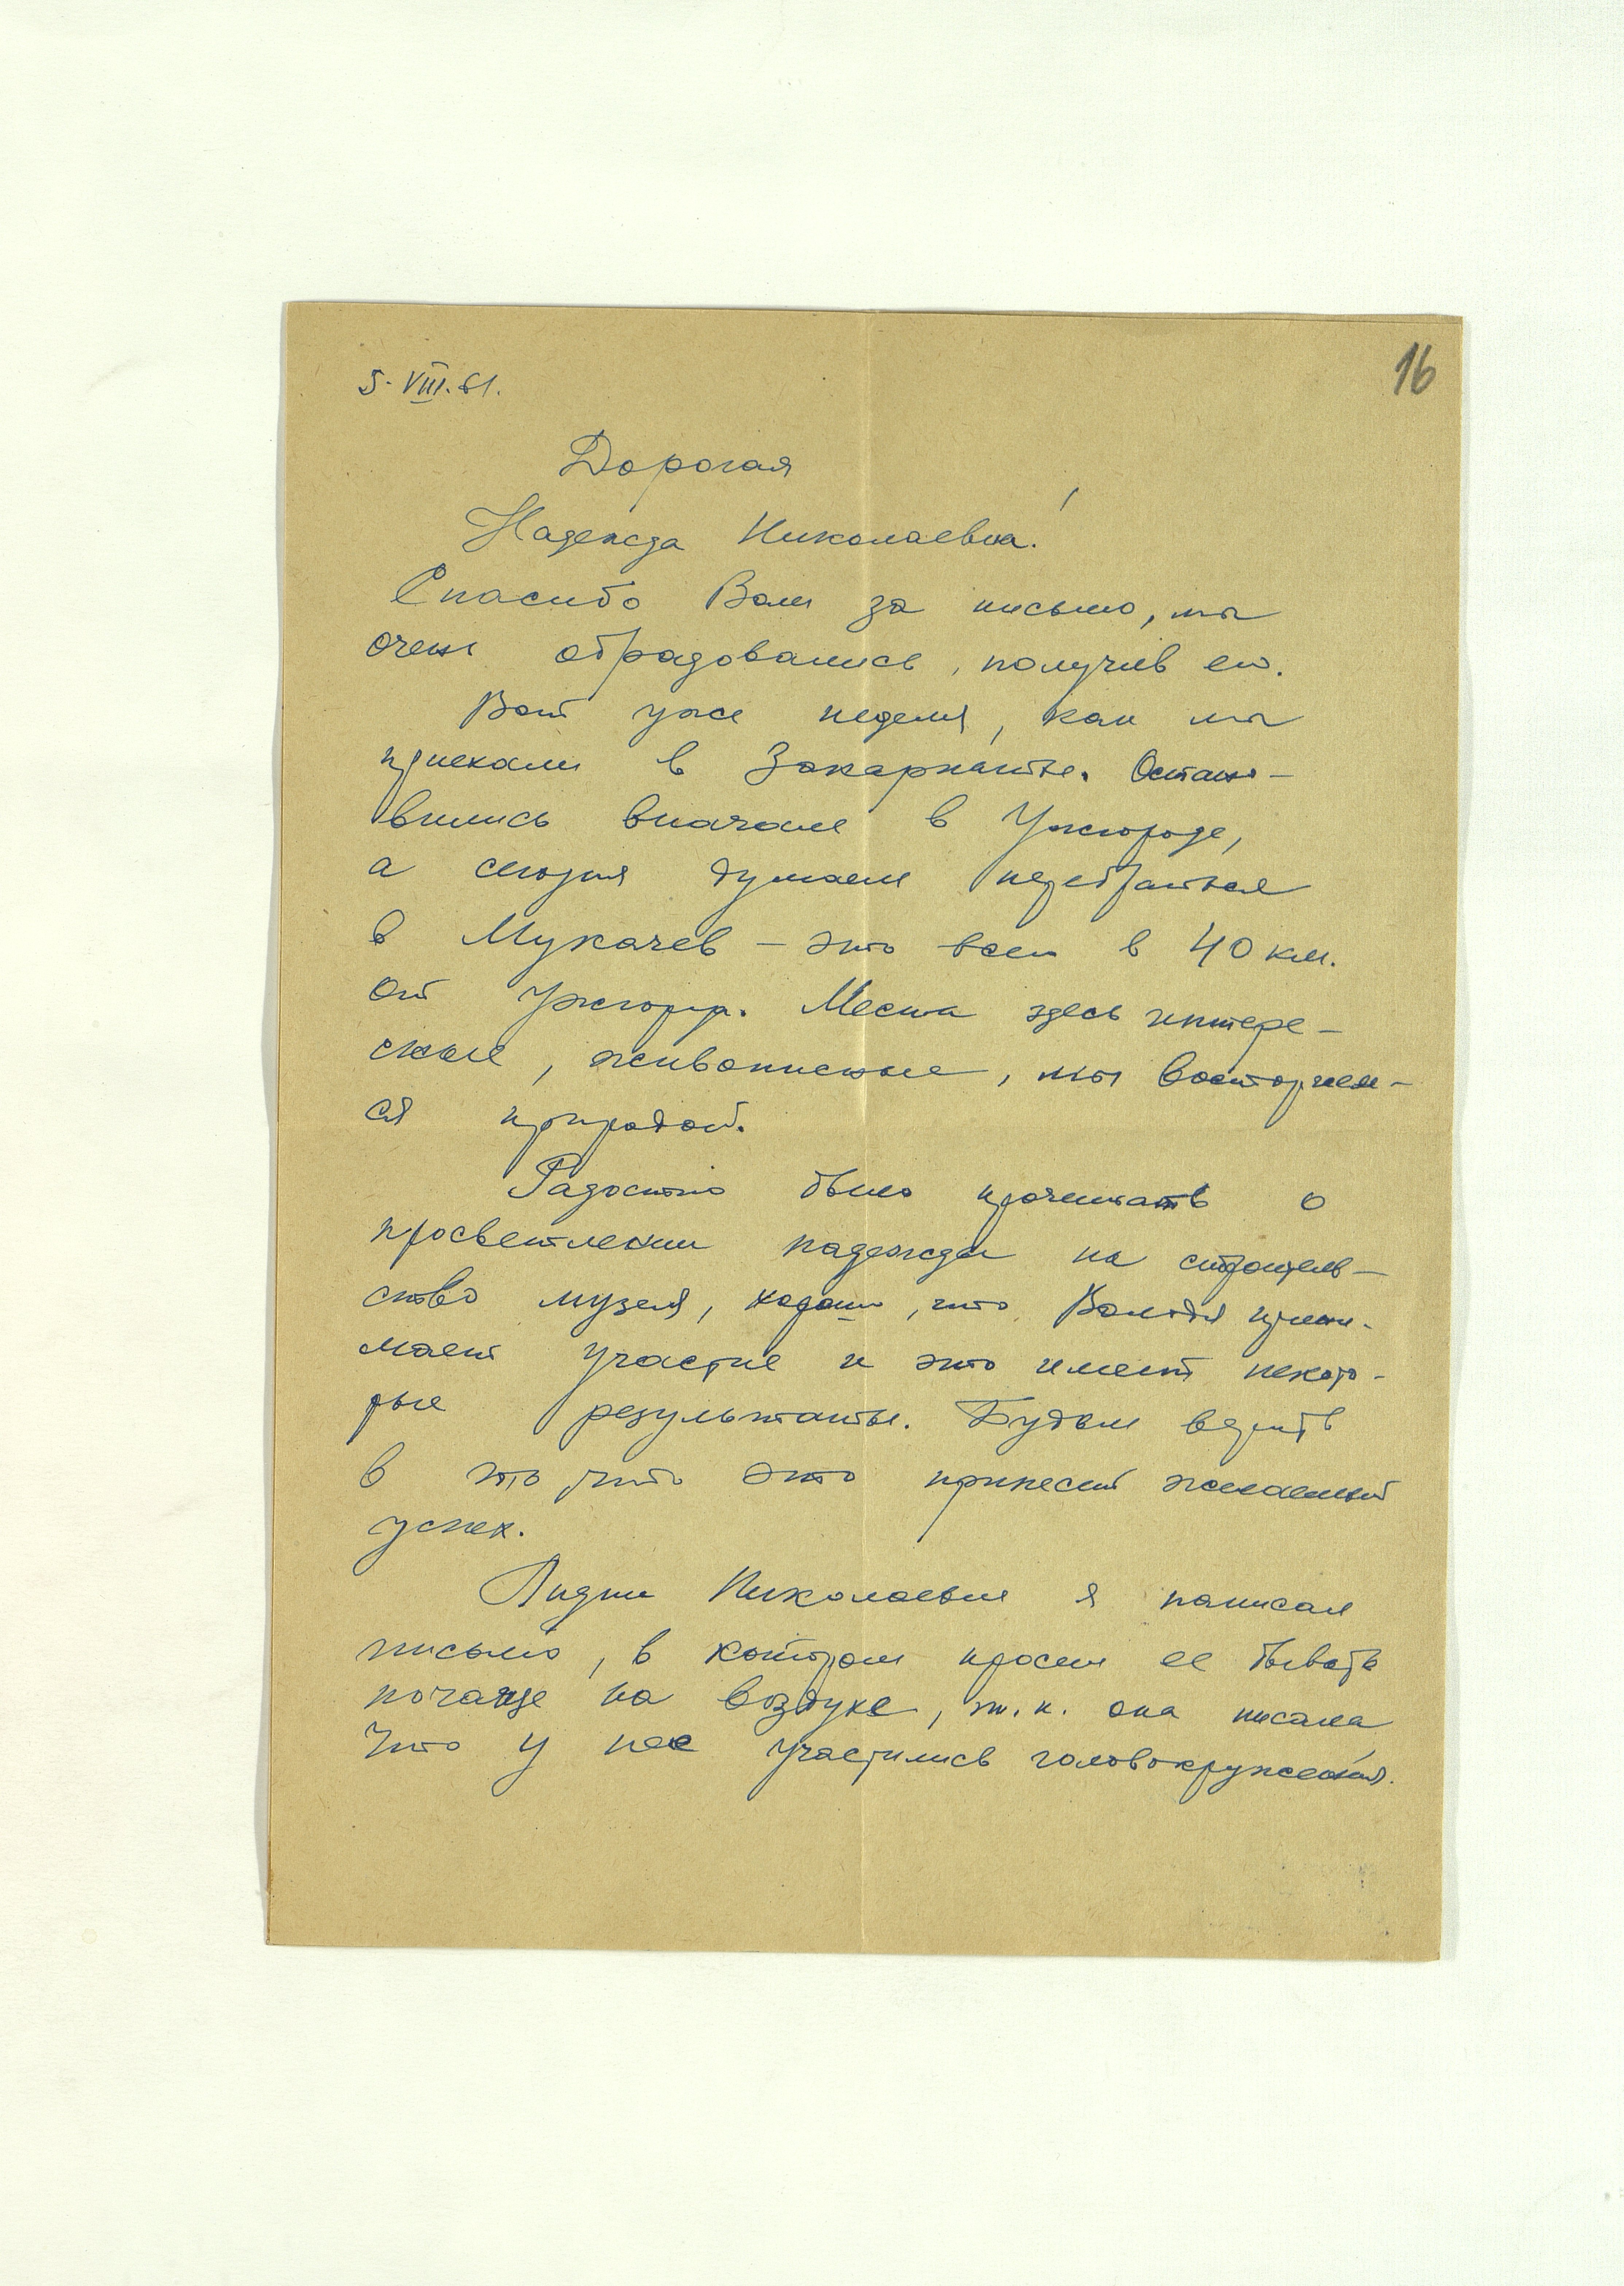 16
5. VIII. 61.
Дорогая
Надежда Николаевна!
Спасибо Вам за письмо, мы
очень обрадовались, получив его.
Вот уже неделя, как мы
приехали в Закарпатье. Остано-
вились вначале в Ужгороде,
а сегодня думаем перебраться
в Мукачев – это всего в 40 км.
от Ужгорода. Места здесь интере-
сные, живописные, мы восторгаем-
ся природой.
Радостно было прочитать о
просветлении надежды на строитель-
ство музея, хорошо, что Володя прини-
мает участие и это имеет некото-
рые результаты. Будем верить
в то, что это принесет желаемый
успех.
Лидии Николаевне я написал
письмо, в котором просил ее бывать
почаще на воздухе, т.к. она писала
что у нее участились головокружения.